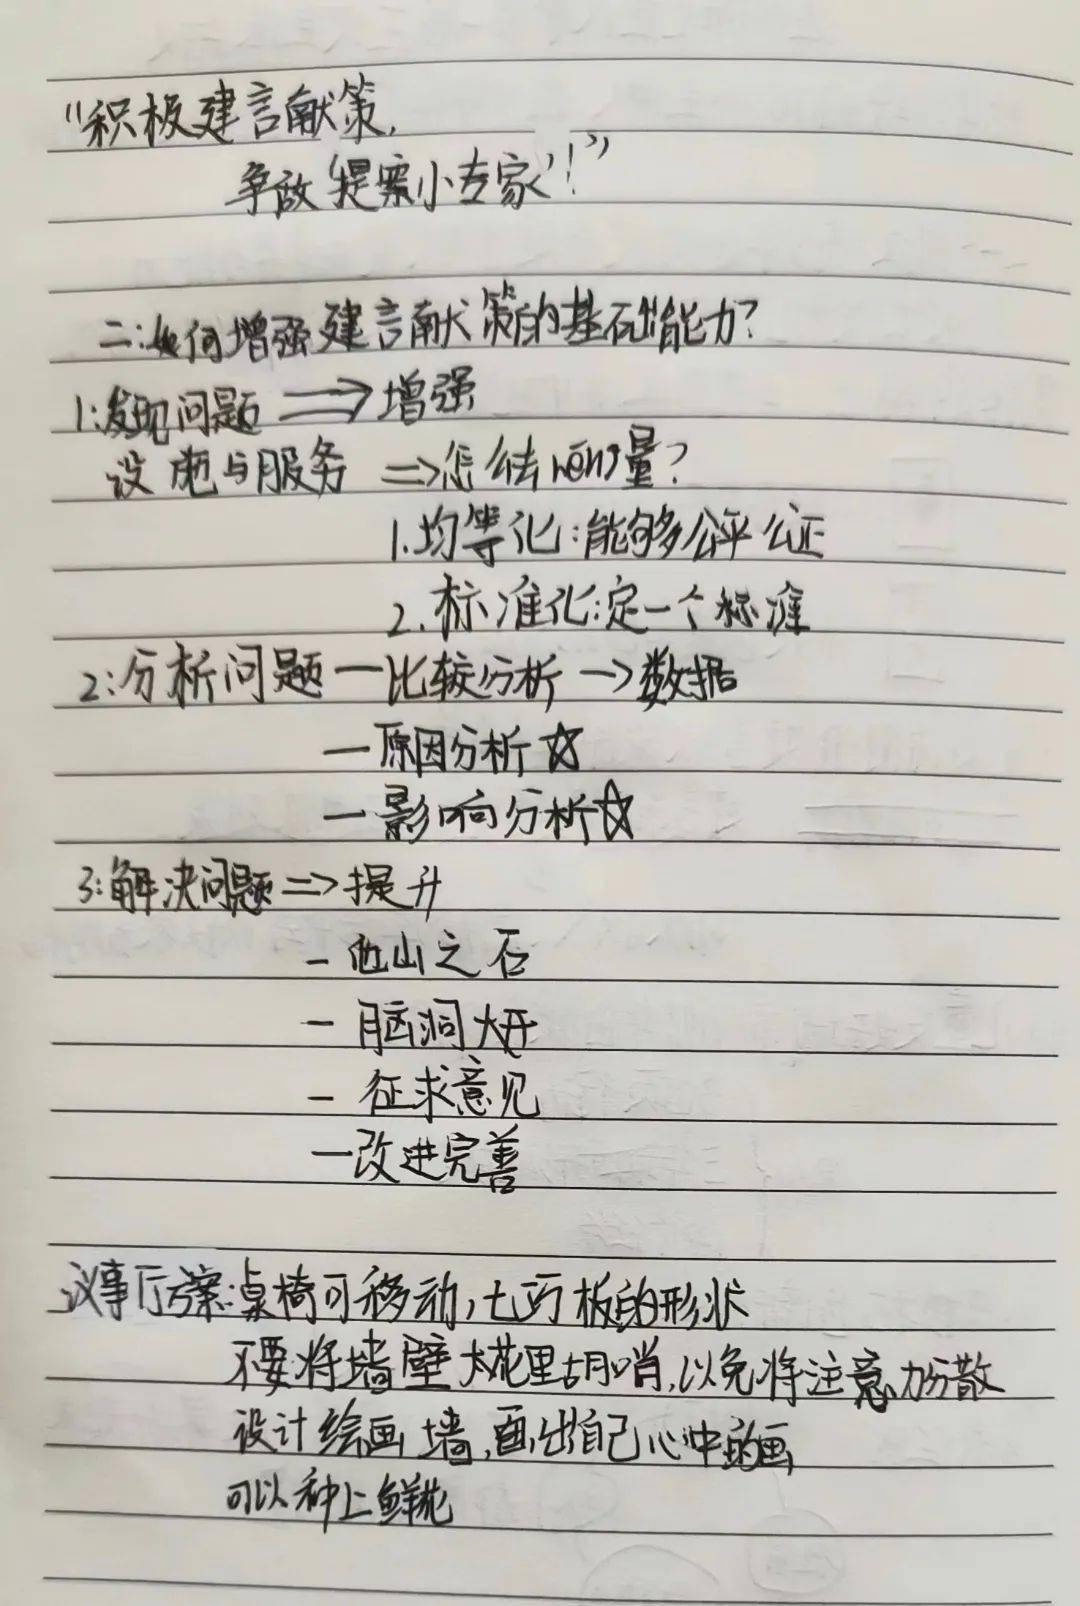 “积极建言献策,
争做‘提案小专家’!”
二:如何增强建言献策的基础能力?
1:发现问题 ⟹ 增强
设施与服务 ⟹怎么去héng量?
1.均等化:能够公平公证
2.标准化:定一个标准
2:分析问题—比较分析→数据
—原因分析☆
—影响分析☆
3:解决问题⟹提升
—他山之石
—脑洞大开
—征求意见
—改进完善
议事厅方案:桌椅可移动,七巧板的形状
不要将墙壁太花里胡哨,以免将注意力分散
设计绘画墙,画出自己心中的画
可以种上鲜花